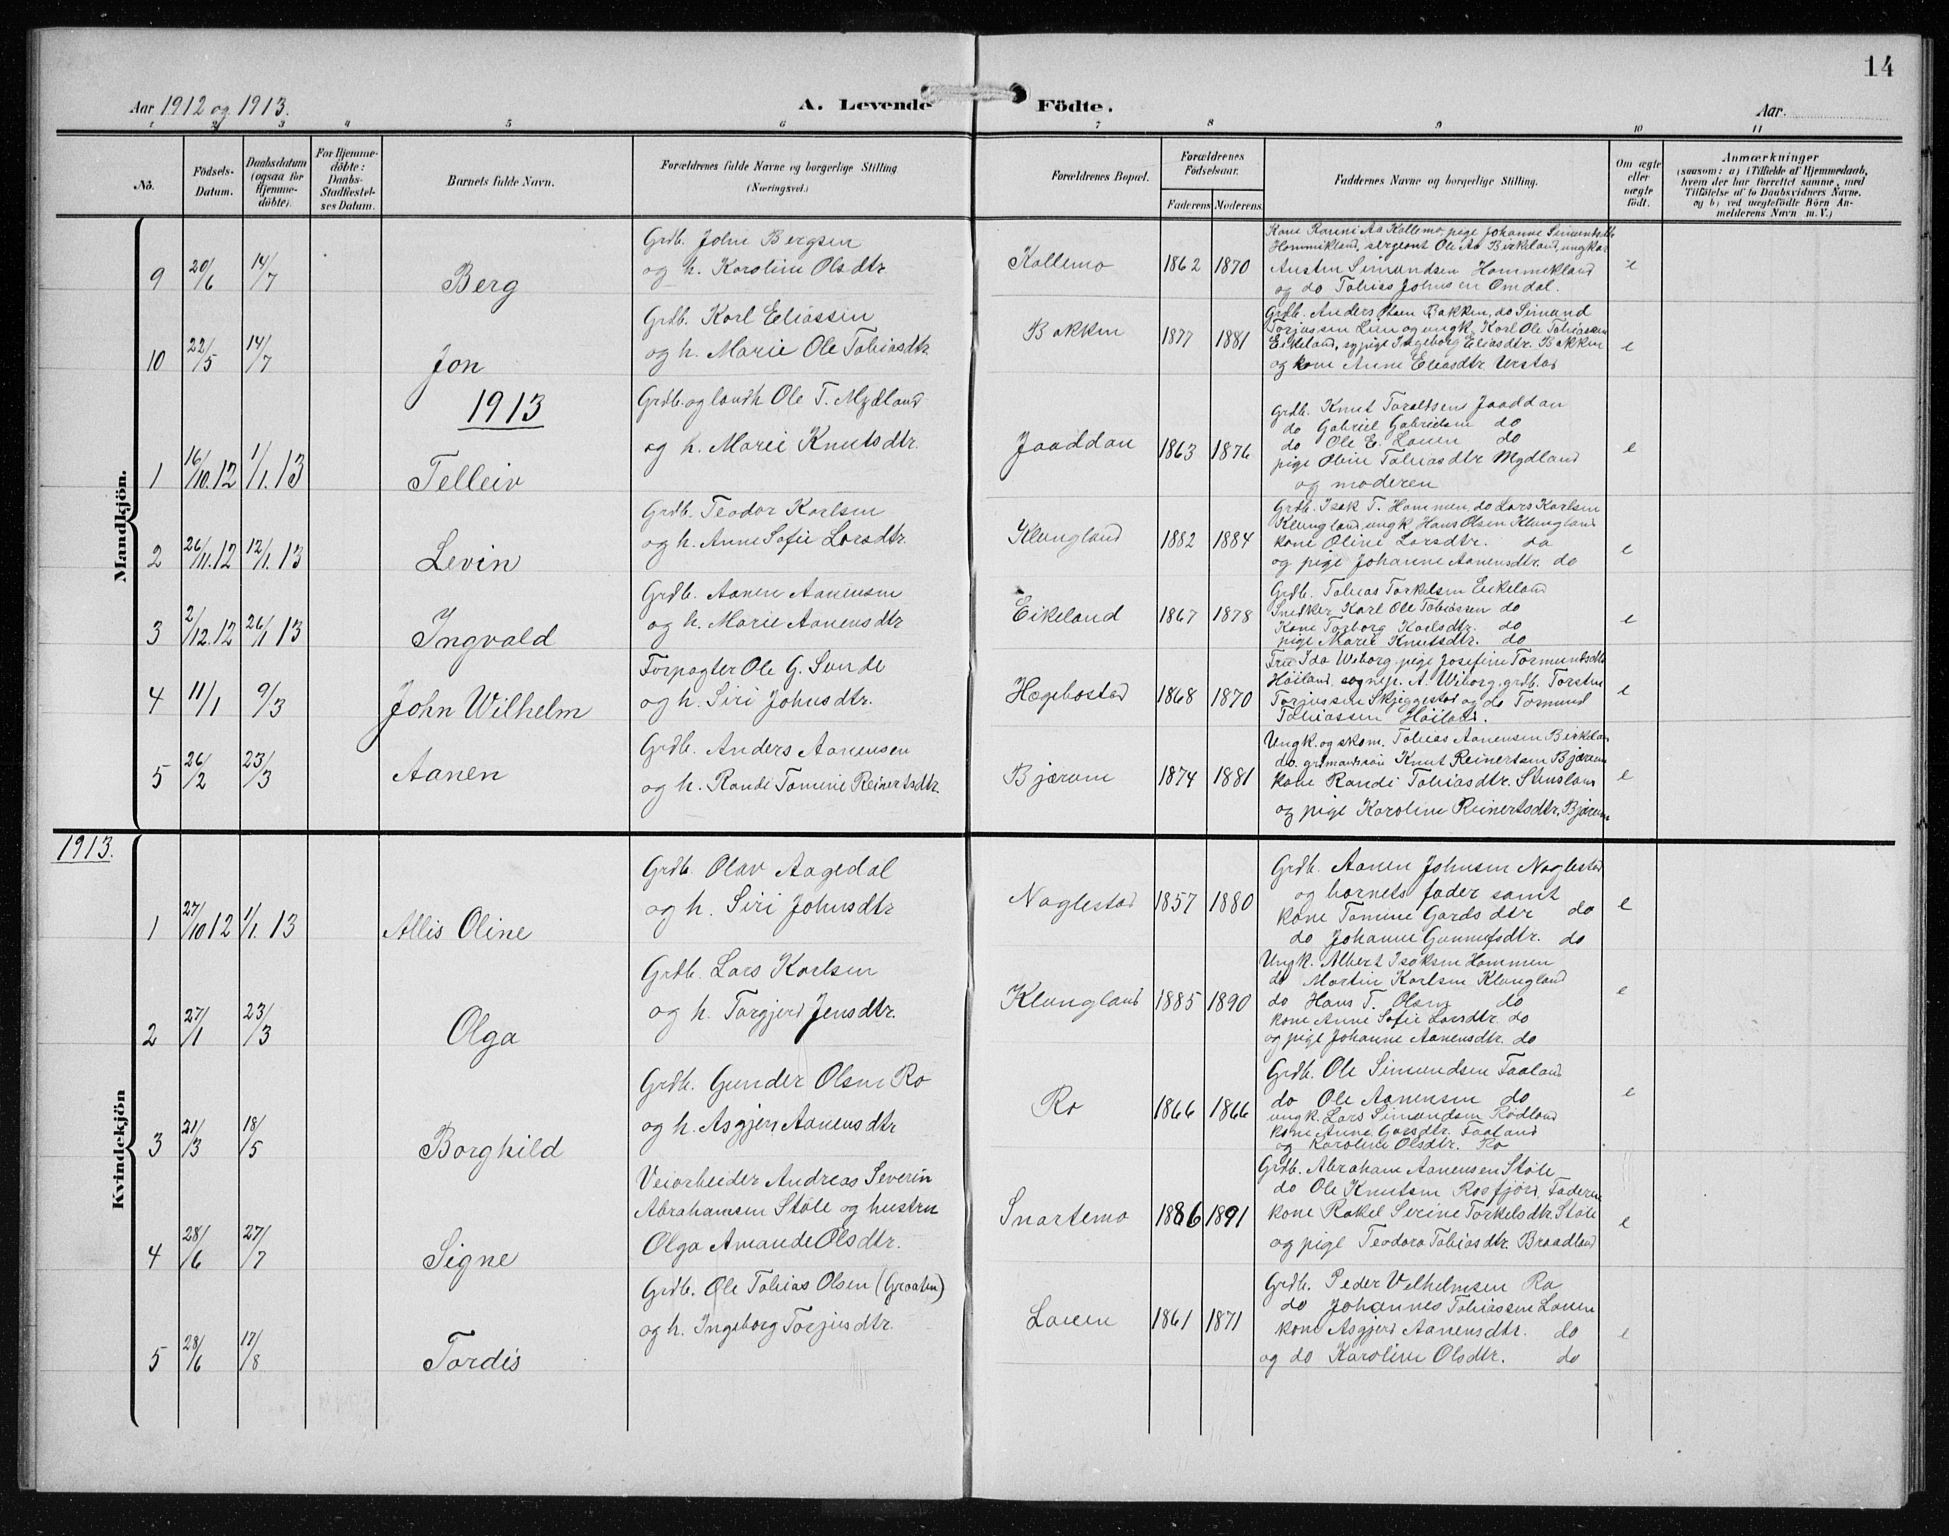 14
Aar 1912 og 1913. A. Levende Födte. Aar.
1 2 3 4 5 6 7 8 9 10 11
No.
Födsels-Datum.
Daabsdatum (ogsaa for Hjemmedöbte).
For Hjemmedöbte: Daabs-Stadfestelses Datum.
Barnets fulde Navn.
Forældrenes fulde Navne og borgerlige Stilling (Næringsvei.)
Forældrenes Bopæl.
Forældrenes Födselsaar.
Faderens. Moderens.
Faddernes Navne og borgerlige Stilling.
Om ægte eller uægte födt.
Anmærkninger
(saasom: a) i Tilfælde af Hjemmedaab,
hvem der har forrettet samme, med
Tilföielse af to Daabsvidners Navne.
og b) ved uægtefödte Börn Anmelderens Navn m. V.)
Mandkjön.
9 20/6 14/7 Berg
Grdb. John Bergsen
og h. Karoline Olsdtr
Kollemo 1862 1870
Kone Karini Aa Kollemo, pige Johanne Simundsdtr
Hommekland, sergeant Ole Aa Birkeland, ungkar
Austen Simundsen Hommekland
og do Tobias Johnsen Omdal.
e
10 22/5 14/7 Jon
Grdb. Karl Eliassen
og h. Marie Ole Tobiasdtr.
Bakken 1877 1881
Grdb. Anders Olsen Bakken, do Simund
Torjussen Lien og ungk. Karl Ole Tobiassen
Eikeland, sypige Ingeborg Eliasdtr. Bakken
og kone Anne Eliasdtr Urstad
e
1913
1 16/10.12 1/1.13 Telleiv
Grdb. og landh Ole T. Mydland
og h. Marie Knutsdtr.
Jaaddan 1863 1876
Grdb. Knut Taraldsen Jaaddan
do Gabriel Gabrielsen do
do Ole E. Lauen do
pige Oline Tobiasdtr Mydland
og moderen
e
2 26/11.12 12/1.13 Levin
Grdb. Teodor Karlsen
og h. Anne Sofie Larsdtr.
Klungland 1882 1884
Grdb. Isak T. Hommen, do Lars Karlsen
Klungland, ungk. Hans Olsen Klungland
kone Oline Larsdtr. do
og pige Johanne Aanensdtr. do
e
3 2/12.12 26/1 13 Ingvald
Grdb. Aanen Aanensen
og h. Marie Aanensdtr
Eikeland 1867 1878
Grdb. Tobias Torkelsen Eikeland
Snedker Karl Ole Tobiassen do
Kone Torborg Karlsdtr. do
pige Marie Knutsdtr. do
e
4 11/1 9/3 John Wilhelm
Forpagter Ole G. Sunde
og h. Siri Johnsdtr.
Hægebostad 1868 1870
Frue Ida Wiborg, pige Josefine Tormundsdtr
Høiland, sognepr. A. Wiborg, grdb. Torsten
Torjussen Skjeggestad og do Tormund
Tobiassen Høiland.
e
5 26/2 23/3 Aanen
Grdb. Anders Aanensen
og h. Rande Tomine Reinertsdtr.
Bjærum 1874 1881
Ungk. og skom. Tobias Aanensen Birkeland
do. Knut Reinertsen Bjærum
kone Randi Tobiasdtr.
og pige Karoline Reinertsdtr, Bjærum
e
1913.
Kvindekjön
1 27/10 12 1/1. 13 Allis Oline
Grdb. Olav Aagedal
og h. Siri Johnsdtr
Naglestad 1857 1880
Grdb. Aanen Johnsen Naglestad
og barnets fader samt
kone Tomine Gardsdtr do
do Johanne Gunnufsdtr. do
e
2 27/1 23/3 Olga
Grdb. Lars Karlsen
og h. Torgjerd Jensdtr.
Klungland 1885 1890
Ungk. Albert Isaksen Hommen
do Martin Karlsen Klungland
do Hans T. Olsen do
kone Anne Sofie Larsdtr. do
og pige Johanne Aanensdtr. do
e
3 21/3 18/5 Borghild
Grdb. Gunder Olsen Ro
og h. Asgjerd Aanensdtr
Ro 1866 1866
Grdb. Ole Simundsen Faaland
do Ole Aanensen do
ungk. Lars Simundsen Rødland
kone Anne Garsdtr. Faaland
og Karoline Olsdtr. Ro
e
4 28/6 27/7 Signe
Veiarbeider Andreas Severin
Abrahamsen Støle og hustru
Olga Amande Olsdtr.
Snartemo 1886 1891
Grdb. Abraham Aanensen Støle
do Ole Knutsen Rosfjord, Faderen
kone Rakel Serine Torkelsdtr. Støle
og pige Teodora Tobiasdtr. Braadland
e
5 28/6 17/8 Tordis
Grdb. Ole Tobias Olsen (Graaten)
og h. Ingeborg Torjusdtr.
Lauen 1861 1871
Grdb. Peder Vilhelmsen Ro
do Johannes Tobiassen Lauen
kone Asgjerd Aanensdtr. do
og do Karoline Olsdtr. do
e